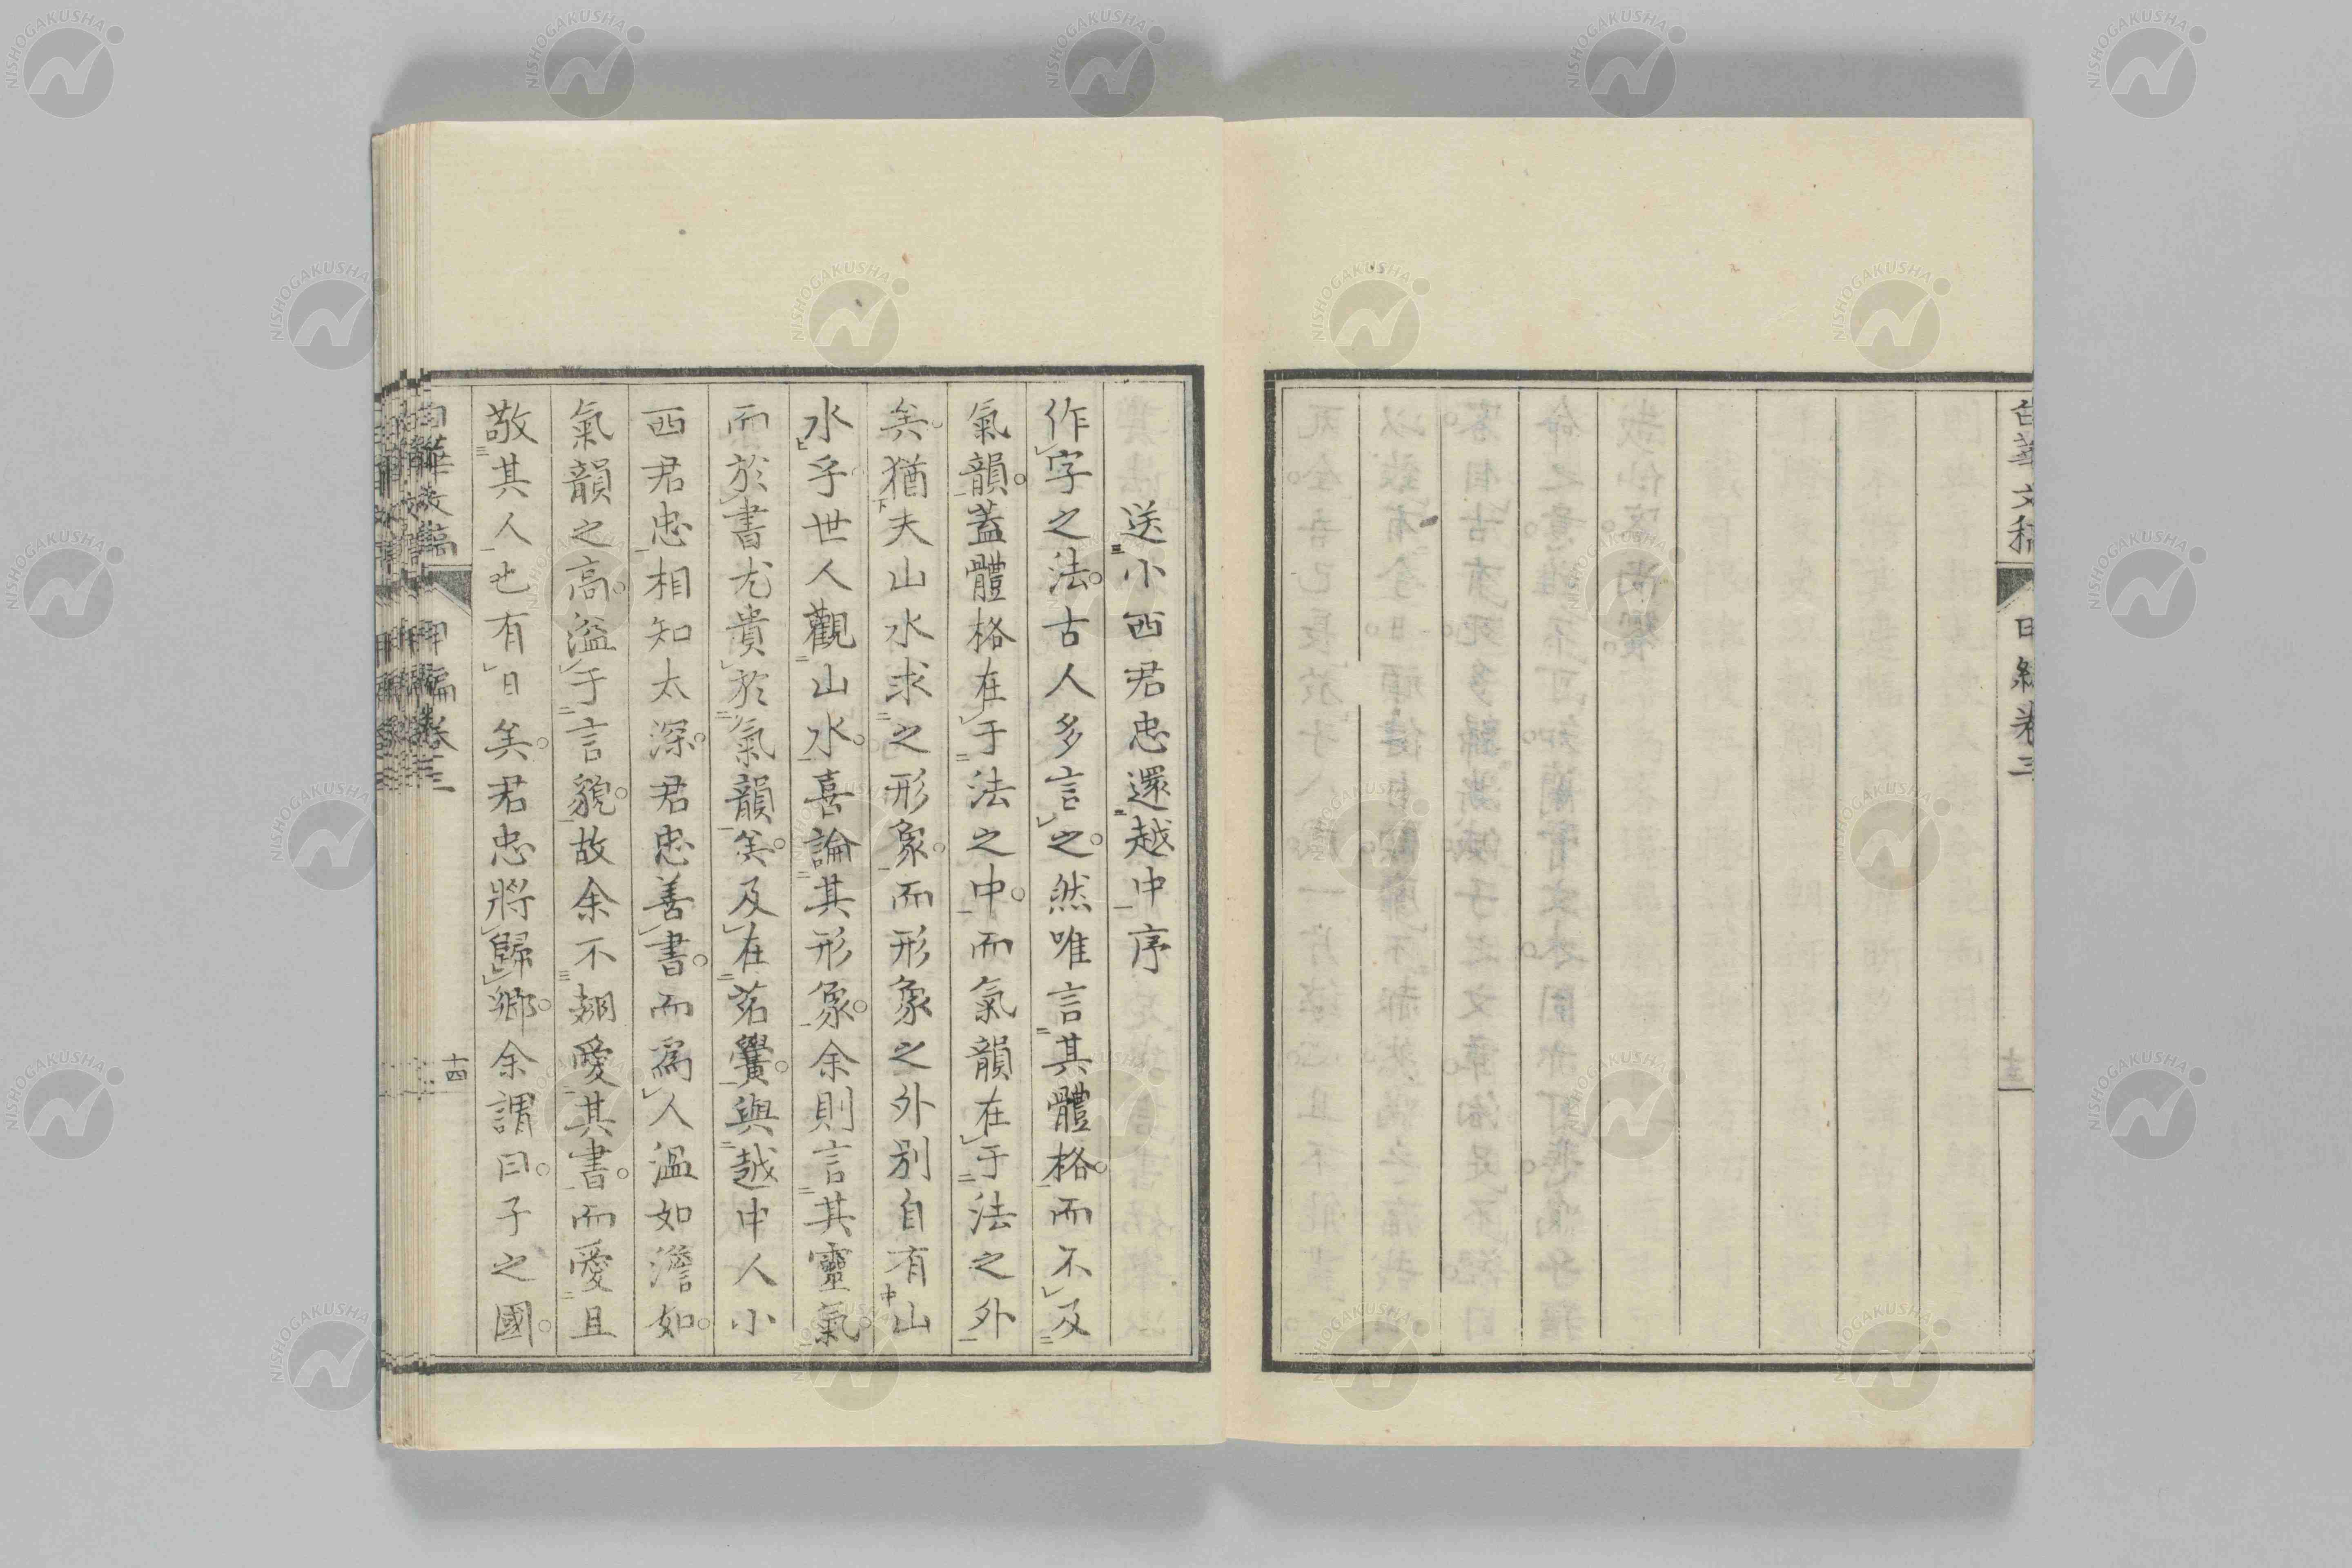 送小西君忠還越中序
作字之法。古人多言之。然唯言其體格。而不及
氣韻。蓋體格在于法之中。而氣韻在于法之外
矣。猶夫山水求之形象。而形象之外別自有山
水乎。世人觀山水。喜論其形象。余則言其靈氣。
而於書尤貴於氣韻矣。及在茗黌。與越中人小
西君忠相知太深。君忠善書。而為人溫如澹如。
氣韻之高。溢于言貌。故余不翅愛其書。而愛且
敬其人也有日矣。君忠將歸鄉。余謂曰。子之國。
十四